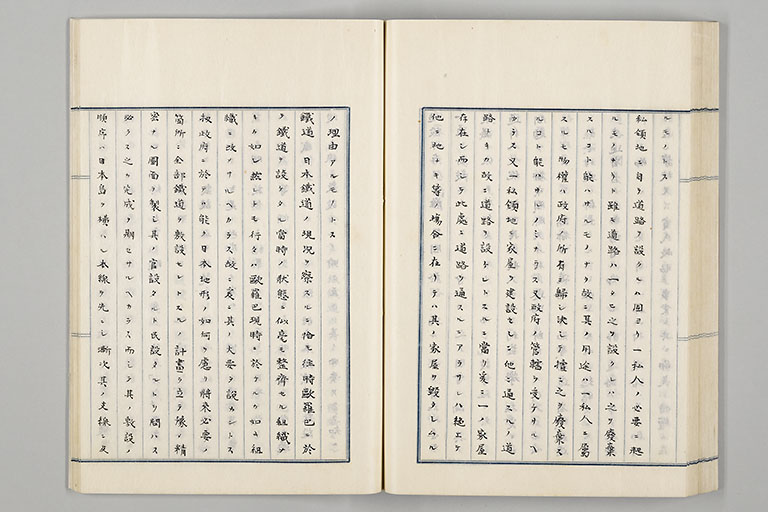 ルモノトス
私領地ニ自ラ道路ヲ設クルハ固ヨリ一私人ノ必要ニ起
ルモノナリト雖モ道路ハ一タヒ之ヲ設クレハ之ヲ廢棄
スルコト能ハサルモノナリ故ニ其ノ用途ハ一私人ニ屬
スルモ物權ハ政府ノ所有ニ歸シ決シテ擅ニ之ヲ廢棄ス
ルコト能ハサルノミナラス又政府ノ管轄ヲ受ケサルヘ
カラス又一私領地ニ家屋ヲ建設セシニ他ニ通スルノ道
路ナキカ故ニ道路ヲ設ケントスルニ當リ爰ニ一ノ家屋
存在シ而シテ此處ニ道路ヲ通スルニアラサレハ絶エテ
他ニ地ナキ等ノ場合ニ在リテハ其ノ家屋ヲ毀タシムル
ノ理由アルモノトス
鐵道 日本鐵道ノ現況ヲ察スルニ恰モ往時歐羅巴ニ於
テ鐵道ヲ設ケタル當時ノ狀態ニ似毫モ整齊セル組織ノ
ナキカ如シ然レトモ行々ハ歐羅巴現時ニ於ケルカ如キ組
織ニ改メサルヘカラス故ニ爰ニ其ノ大要ヲ說カントス
抑政府ニ於テハ能ク日本地形ノ如何ヲ慮リ將來必要ノ
箇所ニ全部鐵道ヲ敷設セントスルノ計畫ヲ立テ豫メ精
密ナル圖面ヲ製シ其ノ官設タルト民設タルトヲ問ハス
必ラス之カ完成ヲ期セサルヘカラス而シテ其ノ敷設ノ
順序ハ日本島ヲ橫ハレル本線ヲ先ニシ漸次其ノ支線ニ及